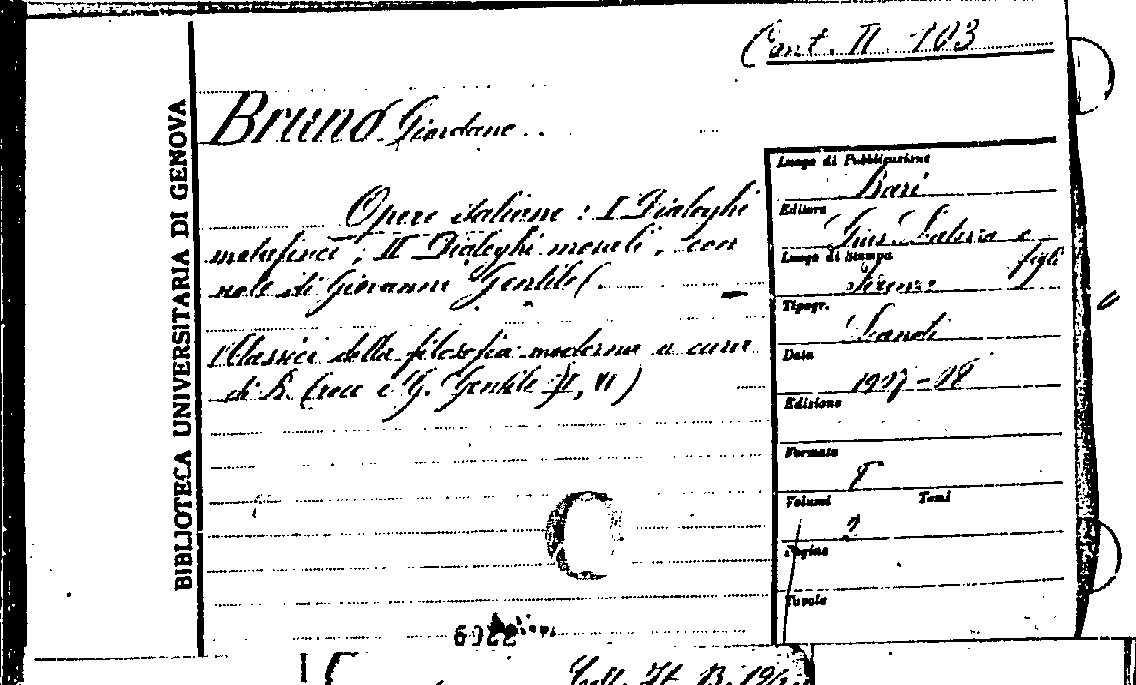 Cont. II. 103
BIBLIOTECA UNIVERSITARIA DI GENOVA
Bruno Giordano..
Opere italiane : I Dialoghi
metafisici ; II Dialoghi morali, con
note di Giovanni Gentile (
Classici della filosofia moderna a cura
di B. Croce e G. Gentile II, VI)
Luogo di Pubblicazione
Bari
Editore
Gius. Laterza e
figli
Luogo di Stampa
Firenze
Tipogr.
Landi
Data
1907-08
Edizione
Formato
8
Volumi Tomi
2
Pagine
Tavole